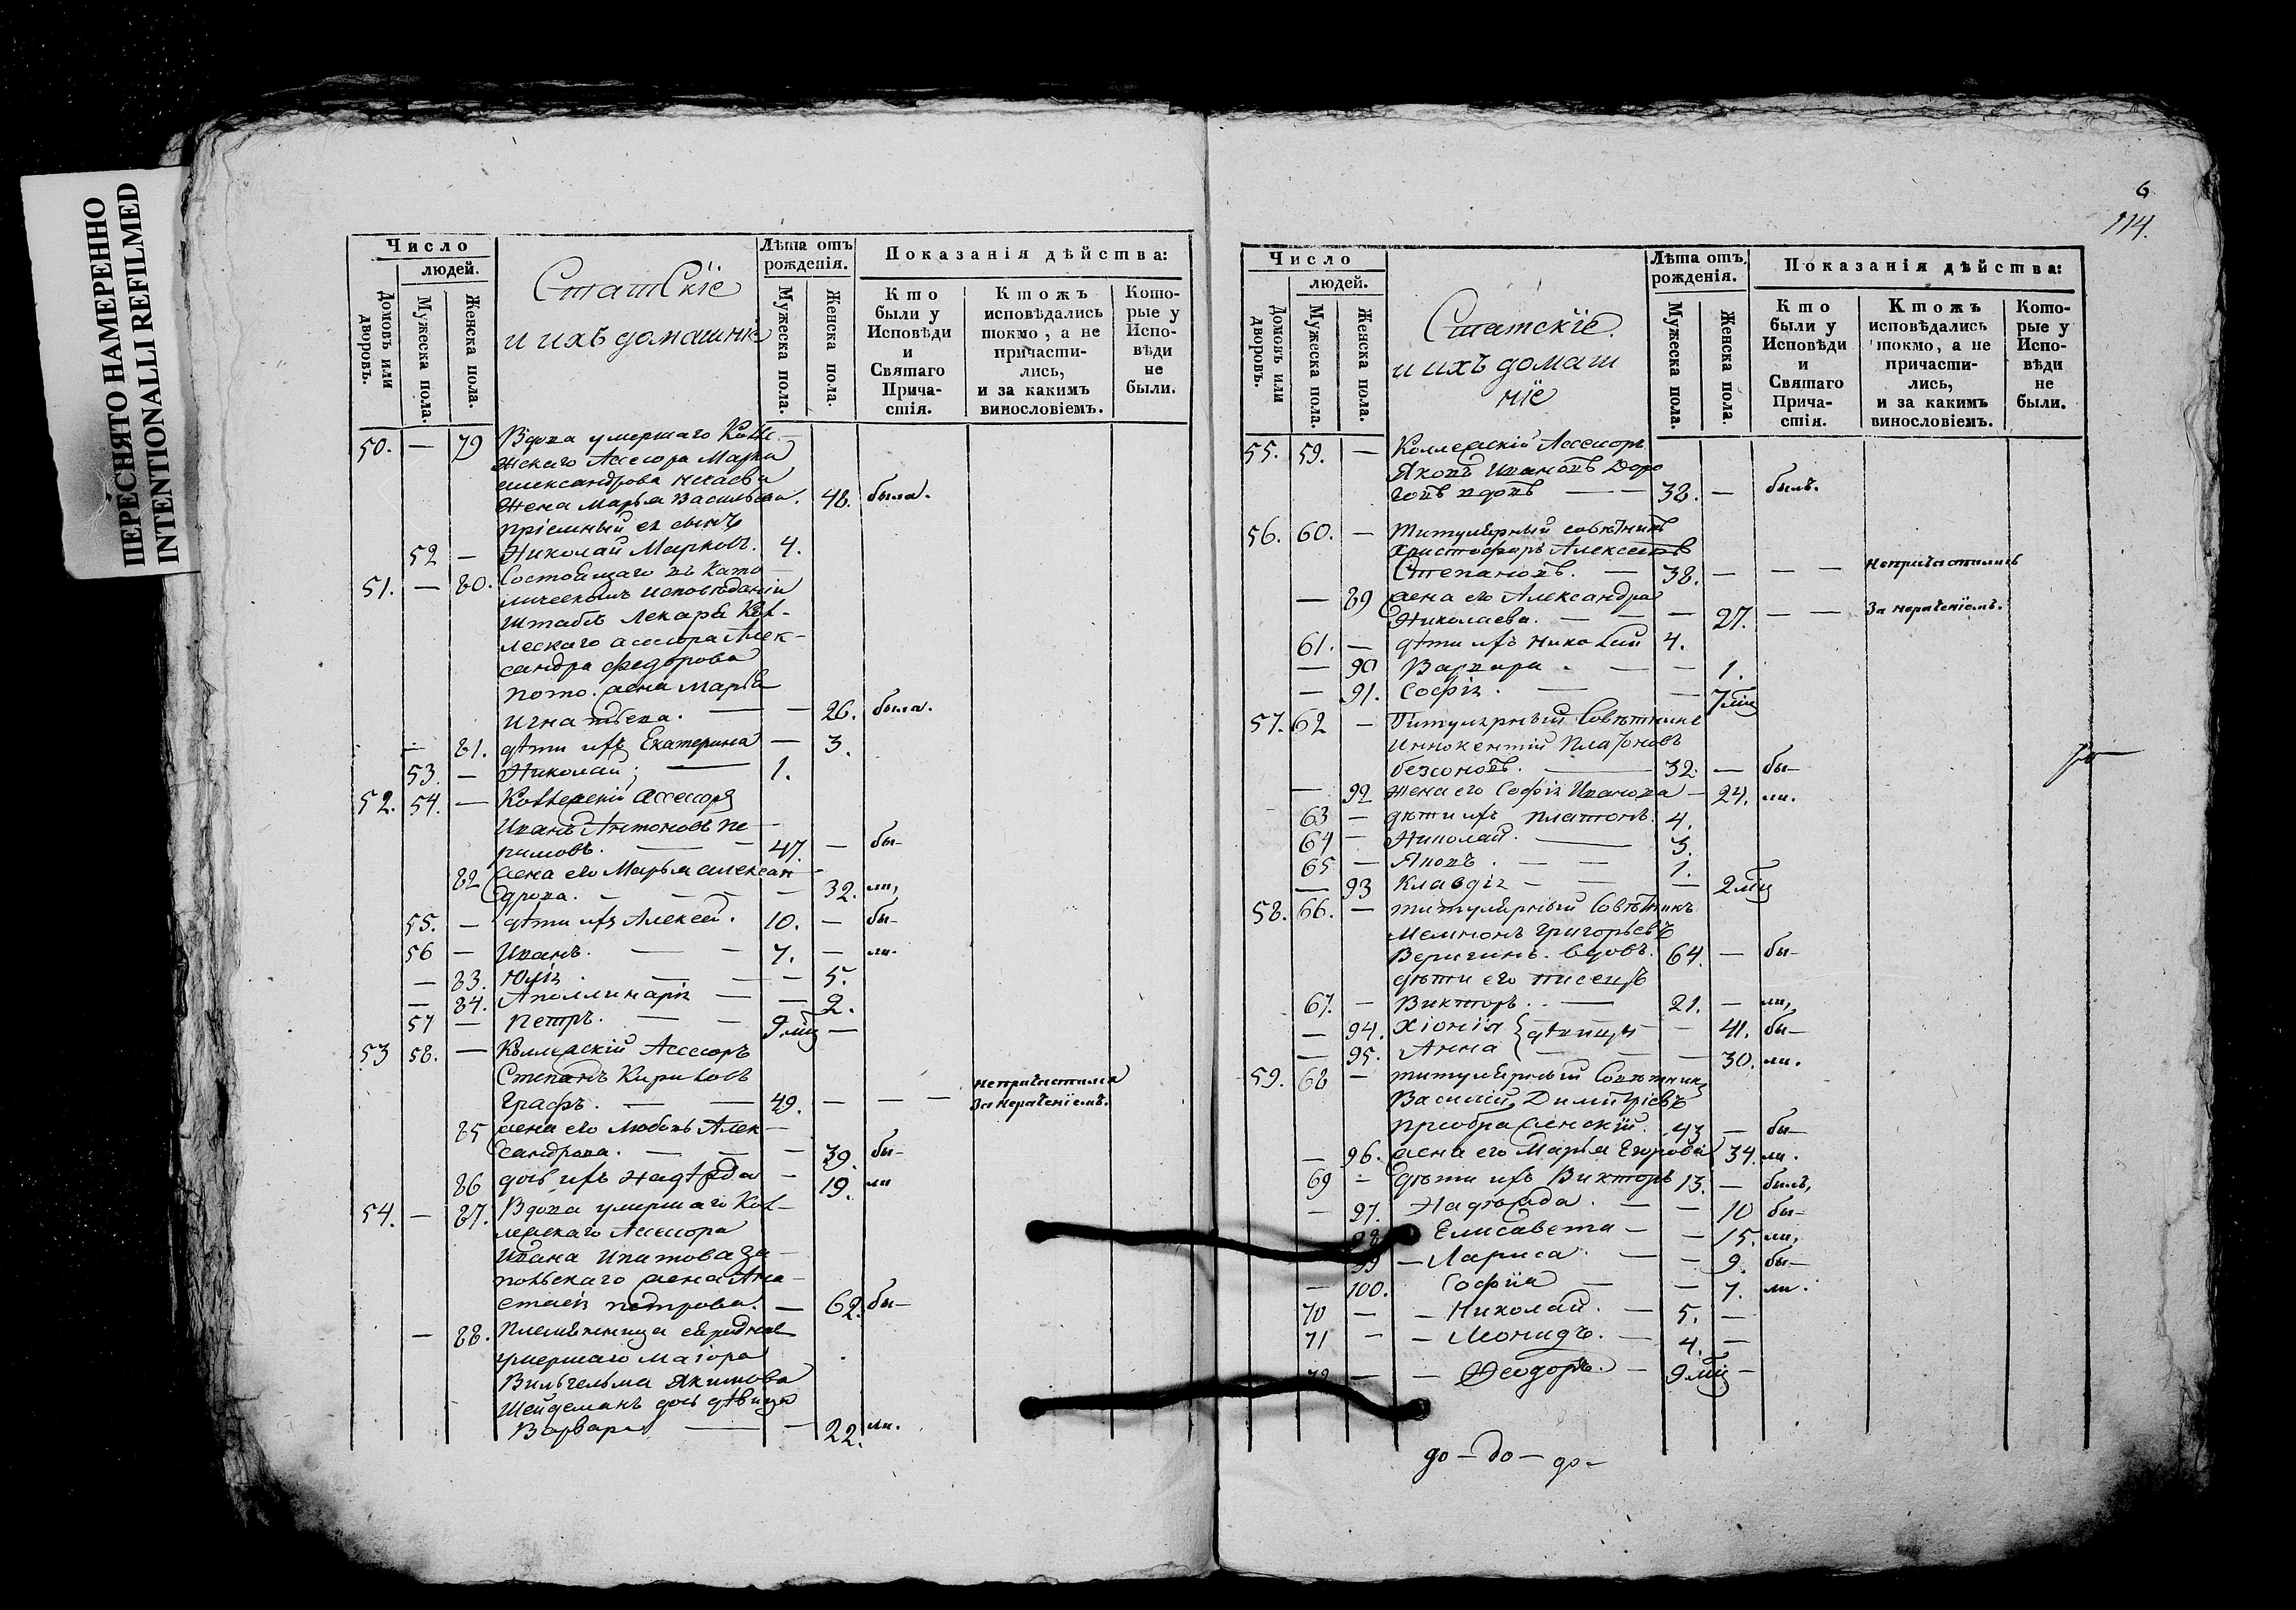 ПЕРЕСНЯТО НАМЕРЕННО
INTENTIONALLI REFILMED
Число
людей.
Домовъ или дворовъ.
Мужеска пола.
Женска пола.
Статскіе
и ихъ домашніе
Лѣта отъ рожденія.
Мужеска пола.
Женска пола.
Показанія дѣйства:
Кто были у Исповѣди и Святаго Прича-стія.
Ктожъ исповѣдались токмо, а не причасти-лись, и за какимъ винословіемъ.
Кото-рые у Испо-вѣди не были.
50. — 79 Вдова умершаго Колле-
жскаго Ассесора Марка
Александрова
жена Марья Васильева. 48. была.
пріемный ея сынъ
52 — Николай Марковъ. 4.
51. — 80. Состоящаго въ Като-
лическомъ исповѣданіи
Штабъ Лекаря Кол-
лескаго ассесора Алек-
сандра Федорова
жена Марья
Игнатьева. — — 26. была.
— 81. дѣти ихъ Екатерина — 3.
53. — Николай; — 1.
52. 54. — Коллежскій Ассессоръ
Иванъ Антоновъ Пе-
римовъ. — — 47. — бы-
82 жена его Марья Алексан-
дрова. — — — — 32. ли,
55. — дѣти ихъ Алексей. 10. — бы-
56 — Иванъ. — — 7. — ли.
— 83. Юлія. — — — 5.
— 84. Аполлинарія — — 2.
57 — Петръ. — — 9 мѣц —
53 58. — Коллежскій Ассесоръ
Степанъ Кириловъ
Графъ. — — 49. — — — непричастился
за нераченіемъ.
85 жена его Любовь Алек-
сандрова. — — — 39. бы-
86 дочь ихъ Надѣжда — 19. ли
54. — 87. Вдова умершаго Кол-
лежскаго Ассесора
Ивана Ипатова За-
польскаго жена Ана-
стасія Петрова. — 62. бы-
— 88. Племянница ея родная
умершаго Маіора
Вильгельма Якимова
Шейдеманъ дочь дѣвица
Варвара — — 22. ли.
6
114.
Число
людей.
Домовъ или дворовъ.
Мужеска пола.
Женска пола.
Статскіе
и ихъ домаш
ніе
Лѣта отъ рожденія.
Мужеска пола.
Женска пола.
Показанія дѣйства:
Кто были у Исповѣди и Святаго Прича-стія.
Ктожъ исповѣдались токмо, а не причасти-лись, и за какимъ винословіемъ.
Кото-рые у Испо-вѣди не были.
55. 59. — Коллежскій Ассесоръ
Яковъ Ивановъ Доро
говъ вдовъ — — 38. — былъ.
56. 60. — Титулярный совѣтникъ
Христофоръ Алексеевъ
Степановъ. — 38. — — — Непричастились
— 89 жена его Александра
Николаева. — — — 27. — — За нераченіемъ.
61. — дѣти ихъ Николай 4.
— 90 Варвара. — — 1.
— 91. Софія. — — 7 мѣц
57. 62 — Титулярный Совѣтникъ
Иннокентій Платоновъ
Безсоновъ. — 32. — бы-
— 92 жена его Софія Иванова — 24. ли.
63 — дѣти ихъ Платонъ. 4.
64 — Николай. — 3.
65 — Яковъ. — — 1.
— 93 Клавдія — — — 2 мѣц
58. 66. — Титулярный Совѣтникъ
Мемнонъ Григорьевъ
Веригинъ. вдовъ. 64. — бы-
дѣти его писецъ
67. — Викторъ. — 21. — ли,
— 94. Хіонія } дѣвицы — 41. бы-
— 95. Анна — — — 30. ли.
59. 68 — Титулярный Совѣтникъ
Василій Димитріевъ
Преображенскій. 43. — бы-
— 96. жена его Марья Егорова 34. ли.
69 — дѣти ихъ Викторъ 13. — былъ,
— 97. Надѣжда. — — 10 бы-
98 Елисавета — — 15. ли,
99 — Лариса. — — 9. бы-
— 100. Софія — — 7. ли.
70 — — Николай. — 5. —
71 — — Леонидъ. — 4. —
72 — — Ѳеодоръ. — 9 мѣц —
до — до — до —